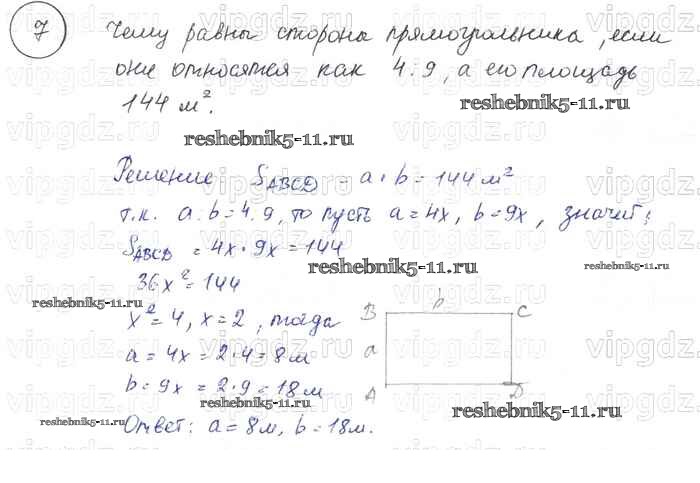 7 Чему равны стороны прямоугольника, если
они относятся как 4:9, а его площадь
144 м².
reshebnik5-11.ru
reshebnik5-11.ru
Решение S_ABCD = a · b = 144 м²
т.к. a:b=4:9, то пусть a=4x, b=9x, значит:
S_ABCD = 4x · 9x = 144
reshebnik5-11.ru
36x² = 144
reshebnik5-11.ru
x² = 4, x = 2, тогда
B b C
a = 4x = 2·4 = 8м
a
b = 9x = 2·9 = 18м
A D
reshebnik5-11.ru
reshebnik5-11.ru
reshebnik5-11.ru
Ответ: a = 8м, b = 18м.
vipgdz.ru